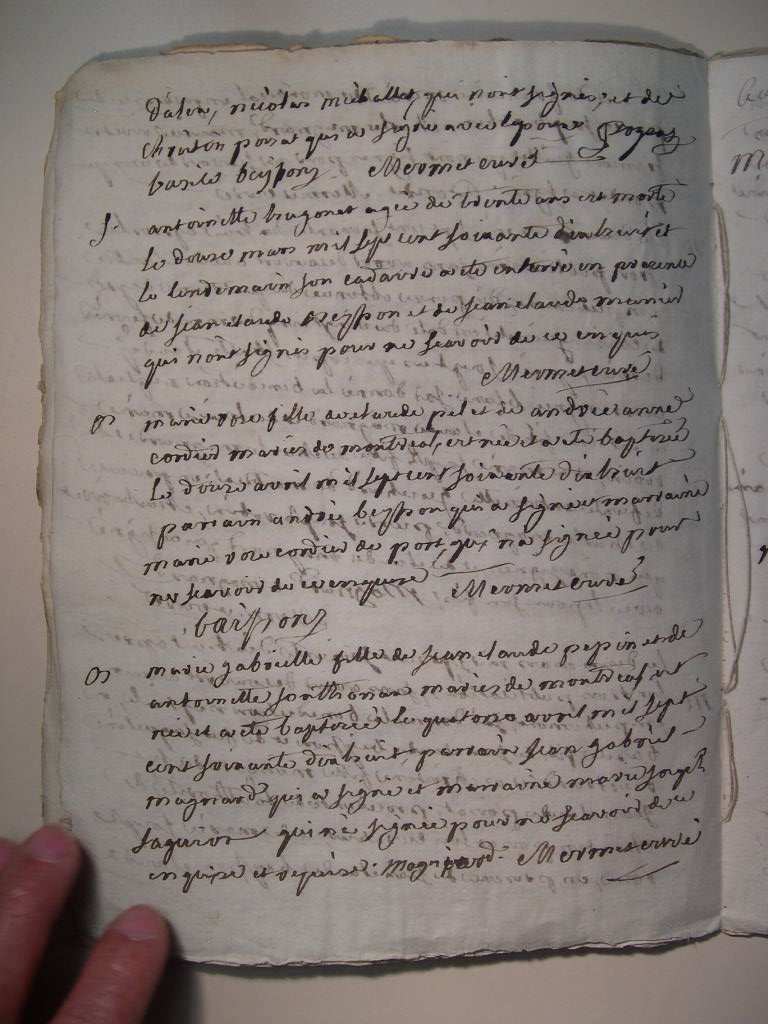 nicolas qui nont signés, et de
qui a signé avec le
basile beysson Mermet curé
S. antoinette agée de trente ans est morte
le douze mars mil sept cent soixante dixhuit et
le lendemain son cadavre a eté enterré en presence
de jean claude beysson et de jean claude
qui nont signés pour ne scavoir de ce enquis
Mermet curé
marie rose fille de claude et de andrée anne
cordier mariés de montreal, est née et a eté baptisée
le douze avril mil sept cent soixante dixhuit
parrain andré beysson qui a signé et marraine
marie rose cordier de port, qui na signée pour
ne scavoir de ce enquise Mermet curé
baisson
marie gabrielle fille de jean claude pepin et de
antoinette mariés de montreal est
née et a eté baptisée le quatorze avril mil sept
cent soixante dixhuit, parrain jean gabriel
magnard qui a signé et marraine marie joseph
qui na signée pour ne scavoir de ce
enquise et requise. magnard. Mermet curé